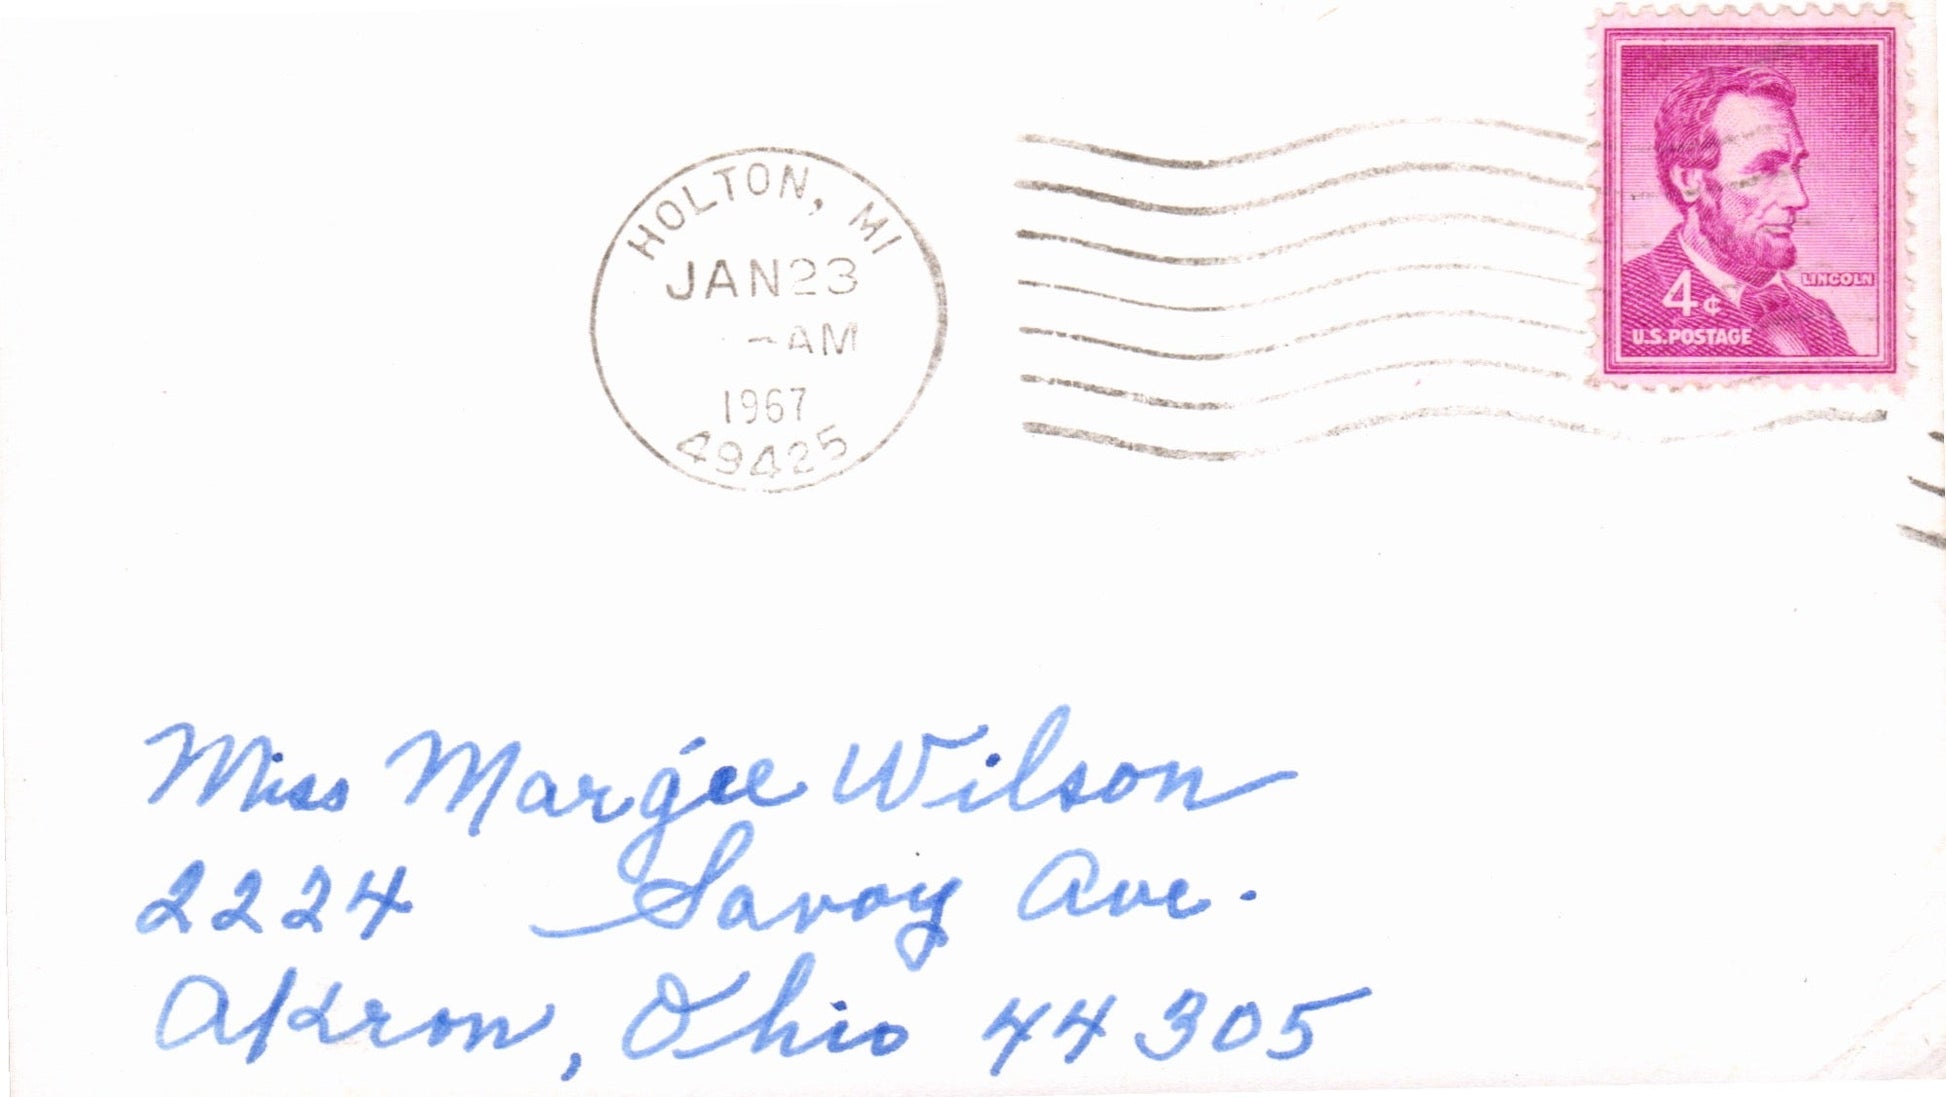 HOLTON, MI
JAN 23
-AM
1967
49425
LINCOLN
4¢
U.S. POSTAGE
Miss Margee Wilson
2224 Savoy Ave.
Akron, Ohio 44305